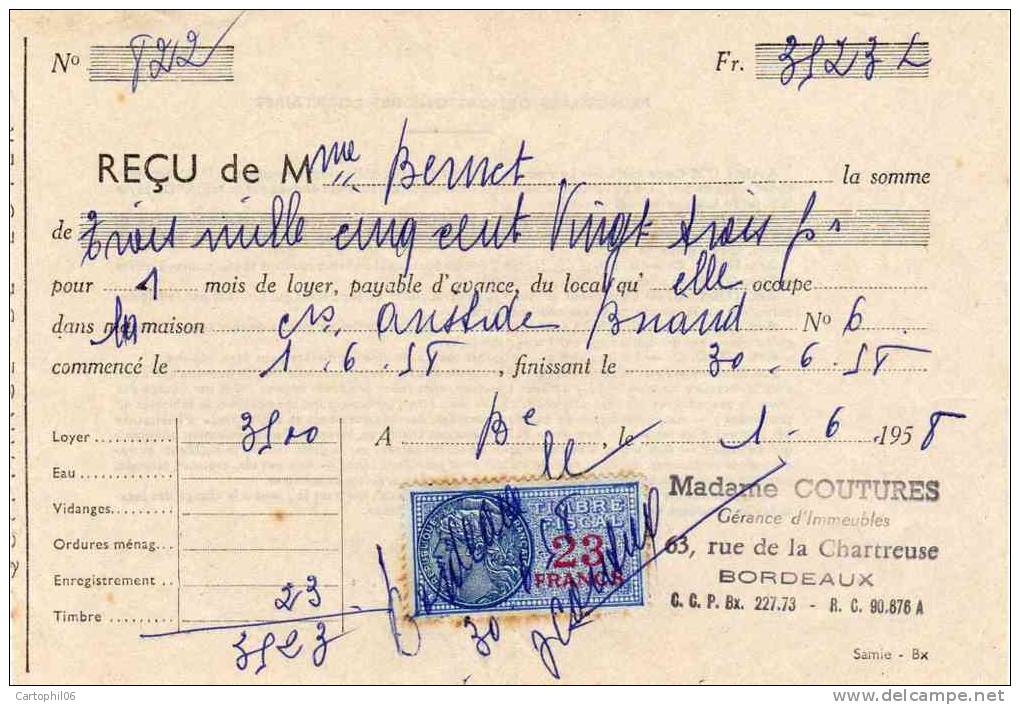 Nº 822 Fr. 3523 L
REÇU de Mme Bernet la somme
de trois mille cinq cent vingt trois frs
pour 1 mois de loyer, payable d'avance, du local qu' elle occupe
dans la maison crs aristide Briand Nº 6
commencé le 1.6.58, finissant le 30.6.58
A Be, le 1-6 1958
Loyer 3500
Eau
Vidanges
Ordures ménag...
Enregistrement
Timbre 23
3523
TIMBRE
FISCAL
23
FRANCS
Madame COUTURES
Gérance d'Immeubles
63, rue de la Chartreuse
BORDEAUX
C. C. P. Bx. 227.73 - R. C. 90.876 A
Samie - Bx
Cartophil06
www.delcampe.net